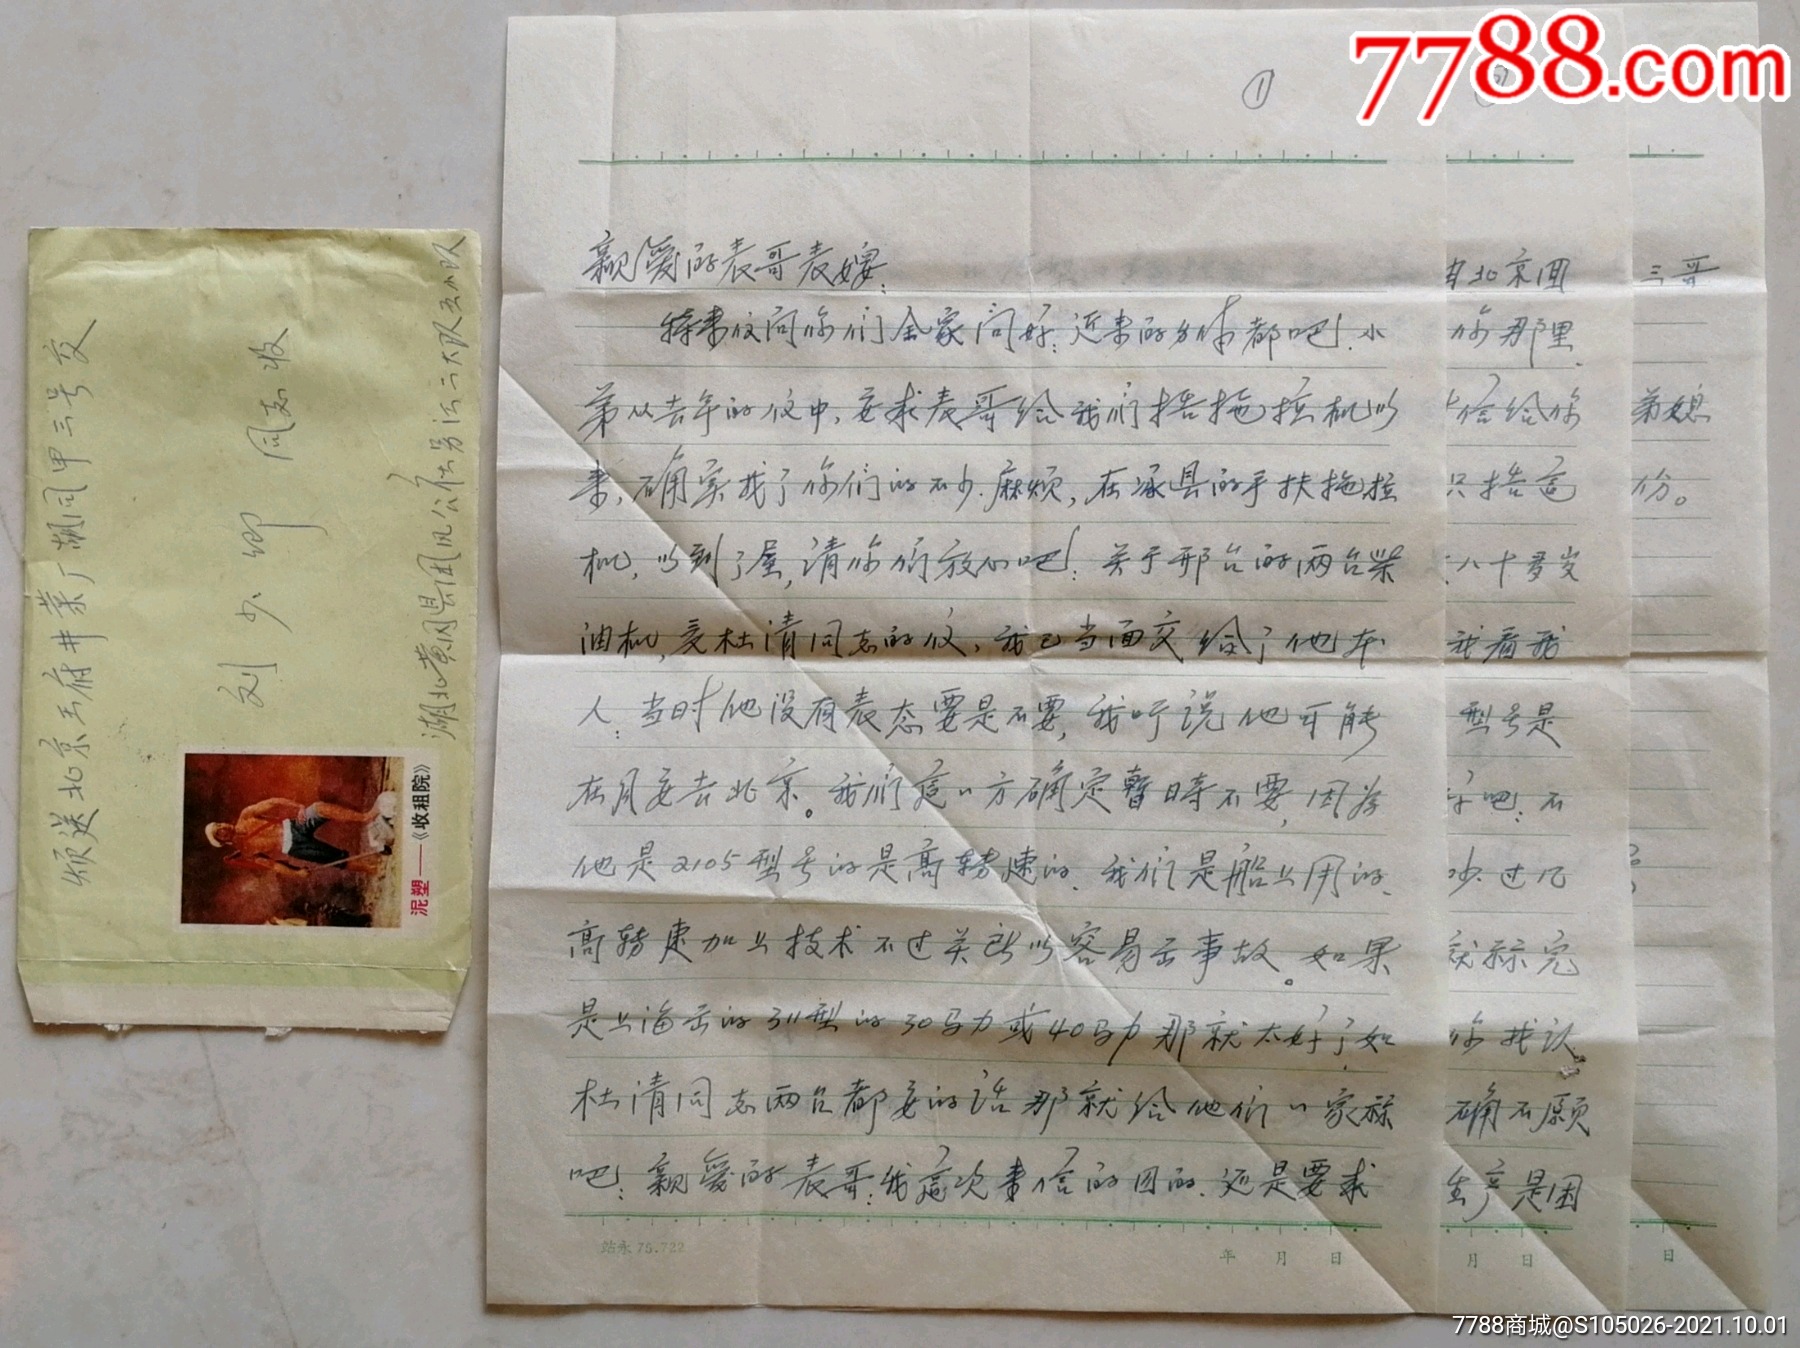 7788.com
①
亲爱的表哥表嫂:
特来信问你们全家问好:近来的身体都吧!小
弟从去年的信中,要求表哥给我们搞拖拉机以
来,确实找了你们的不少麻烦,在 县的手扶拖拉
机,以到了屋,请你们放心吧!关于邢台的两台柴
油机,交杜清同志的信,我已当面交给了他本
人:当时他没有表态要是不要,我听说他可能
在月要去北京。我们这一方确定暂时不要,因为
他是2105型号的是高转速的.我们是船上用的.
高转速加上技术不过关所以容易出事故。如果
是上海出的311型的30马力或40马力那就太好了.如
杜清同志两台都要的话那就给他们一家
吧!亲爱的表哥:我这次来信的目的.还是要求
站永 75.722
年 月 日
北京回
你那里.
信给你
只搞这
八十多岁
我看我
型号是
吧:不
少.过几
就 完
你找
确不愿
生产是困
月 日
三哥
弟媳
份。
日
烦送北京王府井菜厂胡同甲三号交
刘少卿 同志收
湖北黄冈县团风公社 二大队五小队
泥塑——《收租院》
7788商城@S105026-2021.10.01